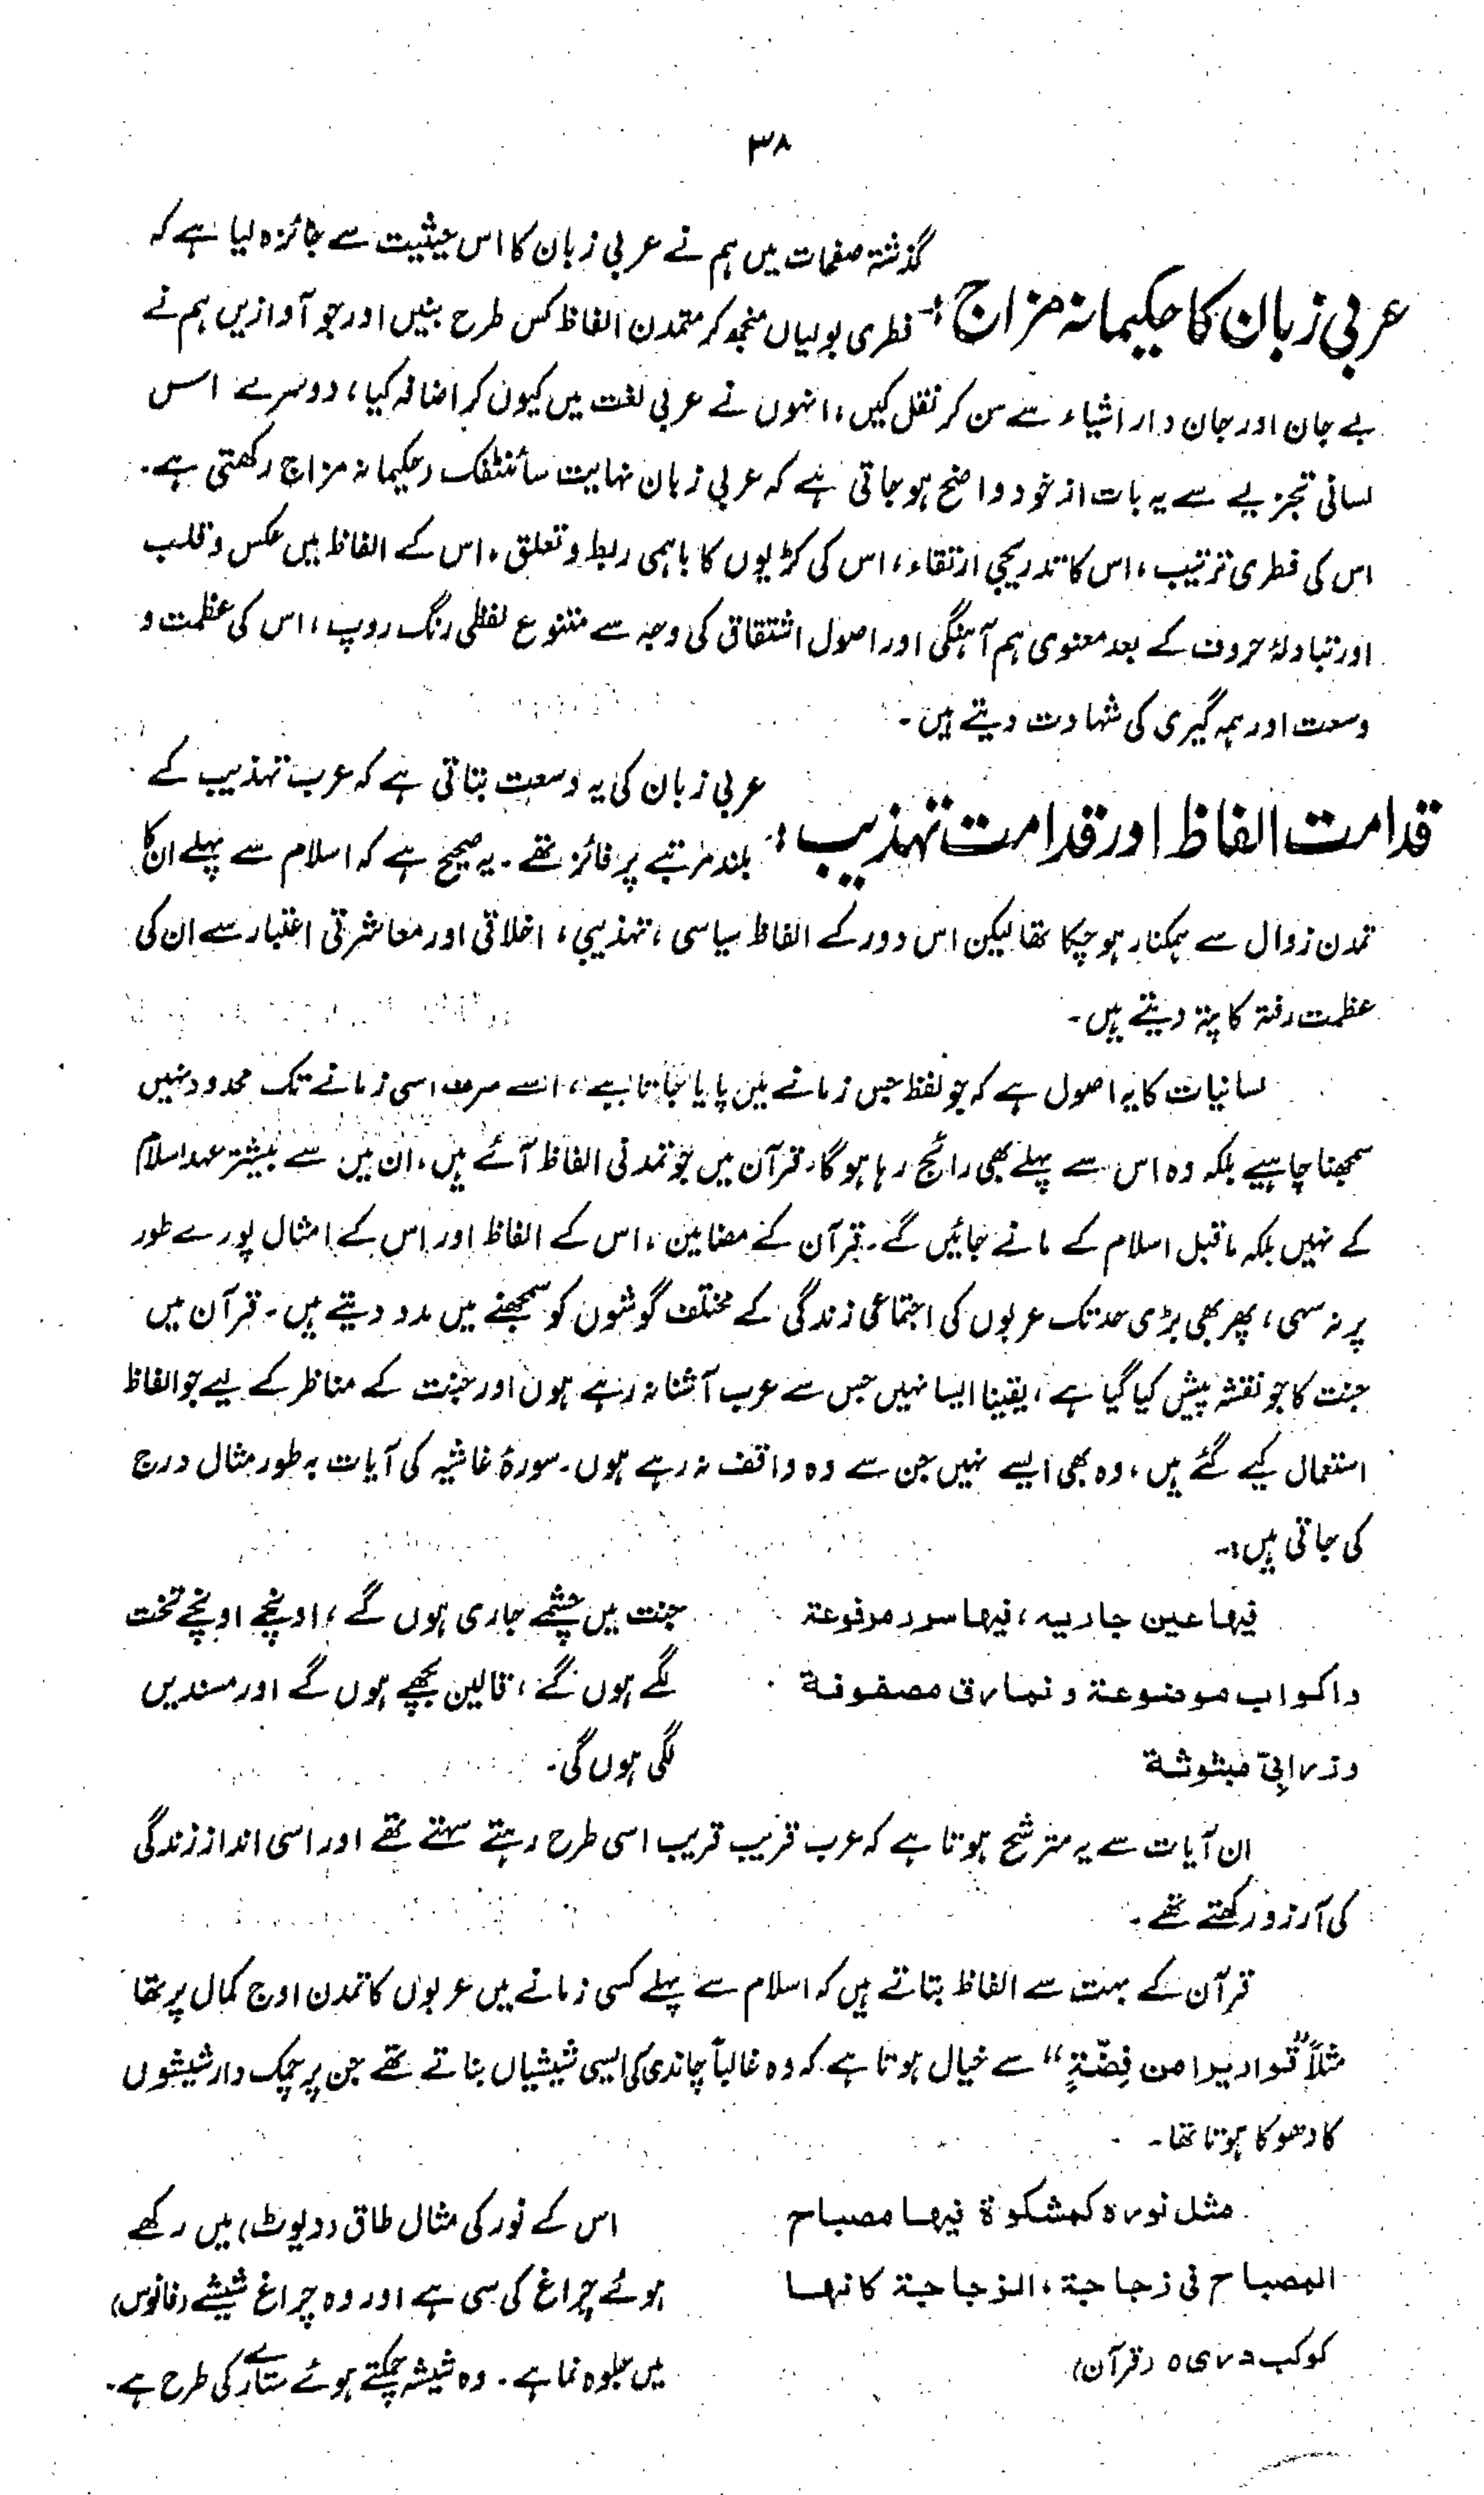 ۳۸
گذشتہ صفحات میں ہم نے عربی زبان کا اس حیثیت سے جائزہ لیا ہے کہ
عربی زبان کا حکیمانہ مزاج :- فطری بولیاں منجھ کر متمدن الفاظ کس طرح بنیں اور جو آوازیں ہم نے
بے جان اور جان دار اشیاء سے سن کر نقل کیں، انہوں نے عربی لغت میں کیوں کر اضافہ کیا، دوسرے اس
لسانی تجزیے سے یہ بات از خود واضح ہو جاتی ہے کہ عربی زبان نہایت سائنٹفک (حکیمانہ مزاج رکھتی ہے۔
اس کی فطری ترتیب، اس کا تدریجی ارتقاء، اس کی کڑیوں کا باہمی ربط و تعلق، اس کے الفاظ میں عکس و قلب
اور تبادلۂ حروف کے بعد معنوی ہم آہنگی اور اصول اشتقاق کی وجہ سے متنوع لفظی رنگ روپ، اس کی عظمت و
وسعت اور ہمہ گیری کی شہادت دیتے ہیں۔
عربی زبان کی یہ وسعت بتاتی ہے کہ عرب تہذیب کے
قدامت الفاظ اور قدامت تہذیب :- بلند مرتبے پر فائز تھے۔ یہ صحیح ہے کہ اسلام سے پہلے ان کا
تمدن زوال سے ہمکنار ہو چکا تھا لیکن اس دور کے الفاظ سیاسی، تہذیبی، اخلاقی اور معاشرتی اعتبار سے ان کی
عظمت رفتہ کا پتہ دیتے ہیں۔
لسانیات کا یہ اصول ہے کہ جو لفظ جس زمانے میں پایا جاتا ہے، اسے صرف اسی زمانے تک محدود نہیں
سمجھنا چاہیے بلکہ وہ اس سے پہلے بھی رائج رہا ہوگا، قرآن میں جو تمدنی الفاظ آئے ہیں، ان میں سے بیشتر عہد اسلام
کے نہیں بلکہ ما قبل اسلام کے مانے جائیں گے۔ قرآن کے مضامین، اس کے الفاظ اور اس کے امثال پورے طور
پر نہ سہی، پھر بھی بڑی حد تک عربوں کی اجتماعی زندگی کے مختلف گوشوں کو سمجھنے میں مدد دیتے ہیں۔ قرآن میں
جنت کا جو نقشہ پیش کیا گیا ہے، یقینا ایسا نہیں جس سے عرب آشنا نہ رہے ہوں اور جنت کے مناظر کے لیے جو الفاظ
استعمال کیے گئے ہیں، وہ بھی ایسے نہیں جن سے وہ واقف نہ رہے ہوں۔ سورۂ غاشیہ کی آیات بہ طور مثال درج
کی جاتی ہیں:۔
فیها عین جاریه، فیها سرر مرفوعة
واکواب موضوعة و نمارق مصفوفة
وزرابیّ مبثوثة
جنت میں چشمے جاری ہوں گے، اونچے اونچے تخت
لگے ہوں گے، قالین بچھے ہوں گے اور مسندیں
لگی ہوں گی۔
ان آیات سے یہ مترشح ہوتا ہے کہ عرب قریب قریب اسی طرح رہتے سہتے تھے اور اسی انداز زندگی
کی آرزو رکھتے تھے۔
قرآن کے بہت سے الفاظ بتاتے ہیں کہ اسلام سے پہلے کسی زمانے میں عربوں کا تمدن اوج کمال پر تھا
مثلاً "قواریرا من فِضّةٍ" سے خیال ہوتا ہے کہ وہ غالباً چاندی کی ایسی شیشیاں بناتے تھے جن پر چمک دار شیشوں
کا دھوکا ہوتا تھا۔
مثل نوره کمشکوة فیها مصباح
المصباح فی زجاجة، الزجاجة کانها
کوکب دری ٥ (قرآن)
اس کے نور کی مثال طاق (دیوٹ) میں رکھے
ہوئے چراغ کی سی ہے اور وہ چراغ شیشے (فانوس)
میں جلوہ نما ہے۔ وہ شیشہ چمکتے ہوئے ستارے کی طرح ہے۔